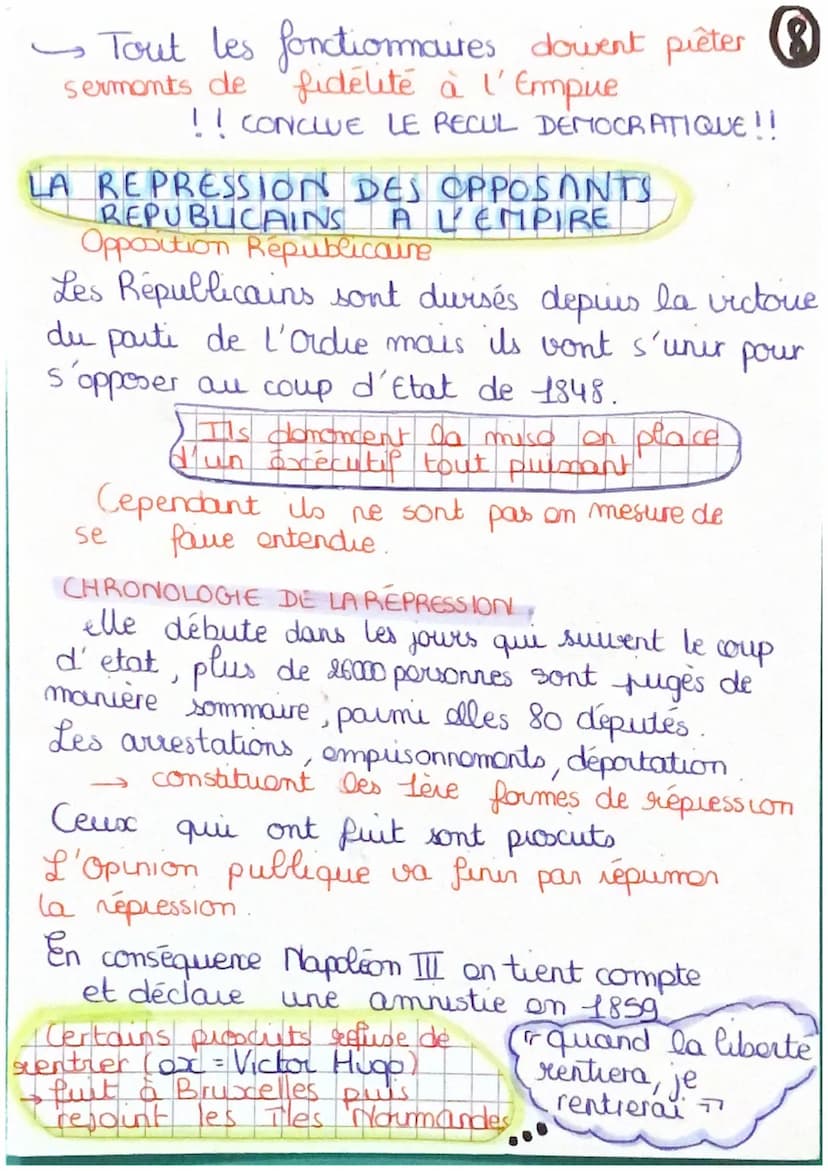 → Tout les fonctionnaires doivent prêter 8
serments de fidélité à l'Empire
!! CONCLUE LE RECUL DEMOCRATIQUE!!
LA REPRESSION DES OPPOSANTS
REPUBLICAINS A L'EMPIRE
Opposition Républicaire
Les Républicains sont divisés depuis la victoire
du parti de l'Ordre mais ils vont s'unir pour
s'opposer au coup d'Etat de 1848.
Ils demandent la mise en place
d'un éxécutif tout puissant
Cependant ils ne sont pas en mesure de
se faire entendre.
CHRONOLOGIE DE LA RÉPRESSION
elle débute dans les jours qui suivent le coup
d'etat, plus de 26000 personnes sont jugès de
manière sommaire, parmi elles 80 députés.
Les arrestations, emprisonnements, déportation
→ constituent les 1ère formes de répression
Ceux qui ont fuit sont proscrits
L'Opinion publique va finir par réprimer
la répression.
En conséquence Napoléon III en tient compte
et déclare une amnistie en 1859
Certains proscrits refuse de
rentrer (ex = Victor Hugo)
→ fuit à Bruxelles puis
rejoint les îles Normandes
"quand la liberté
rentrera, je
rentrerai"